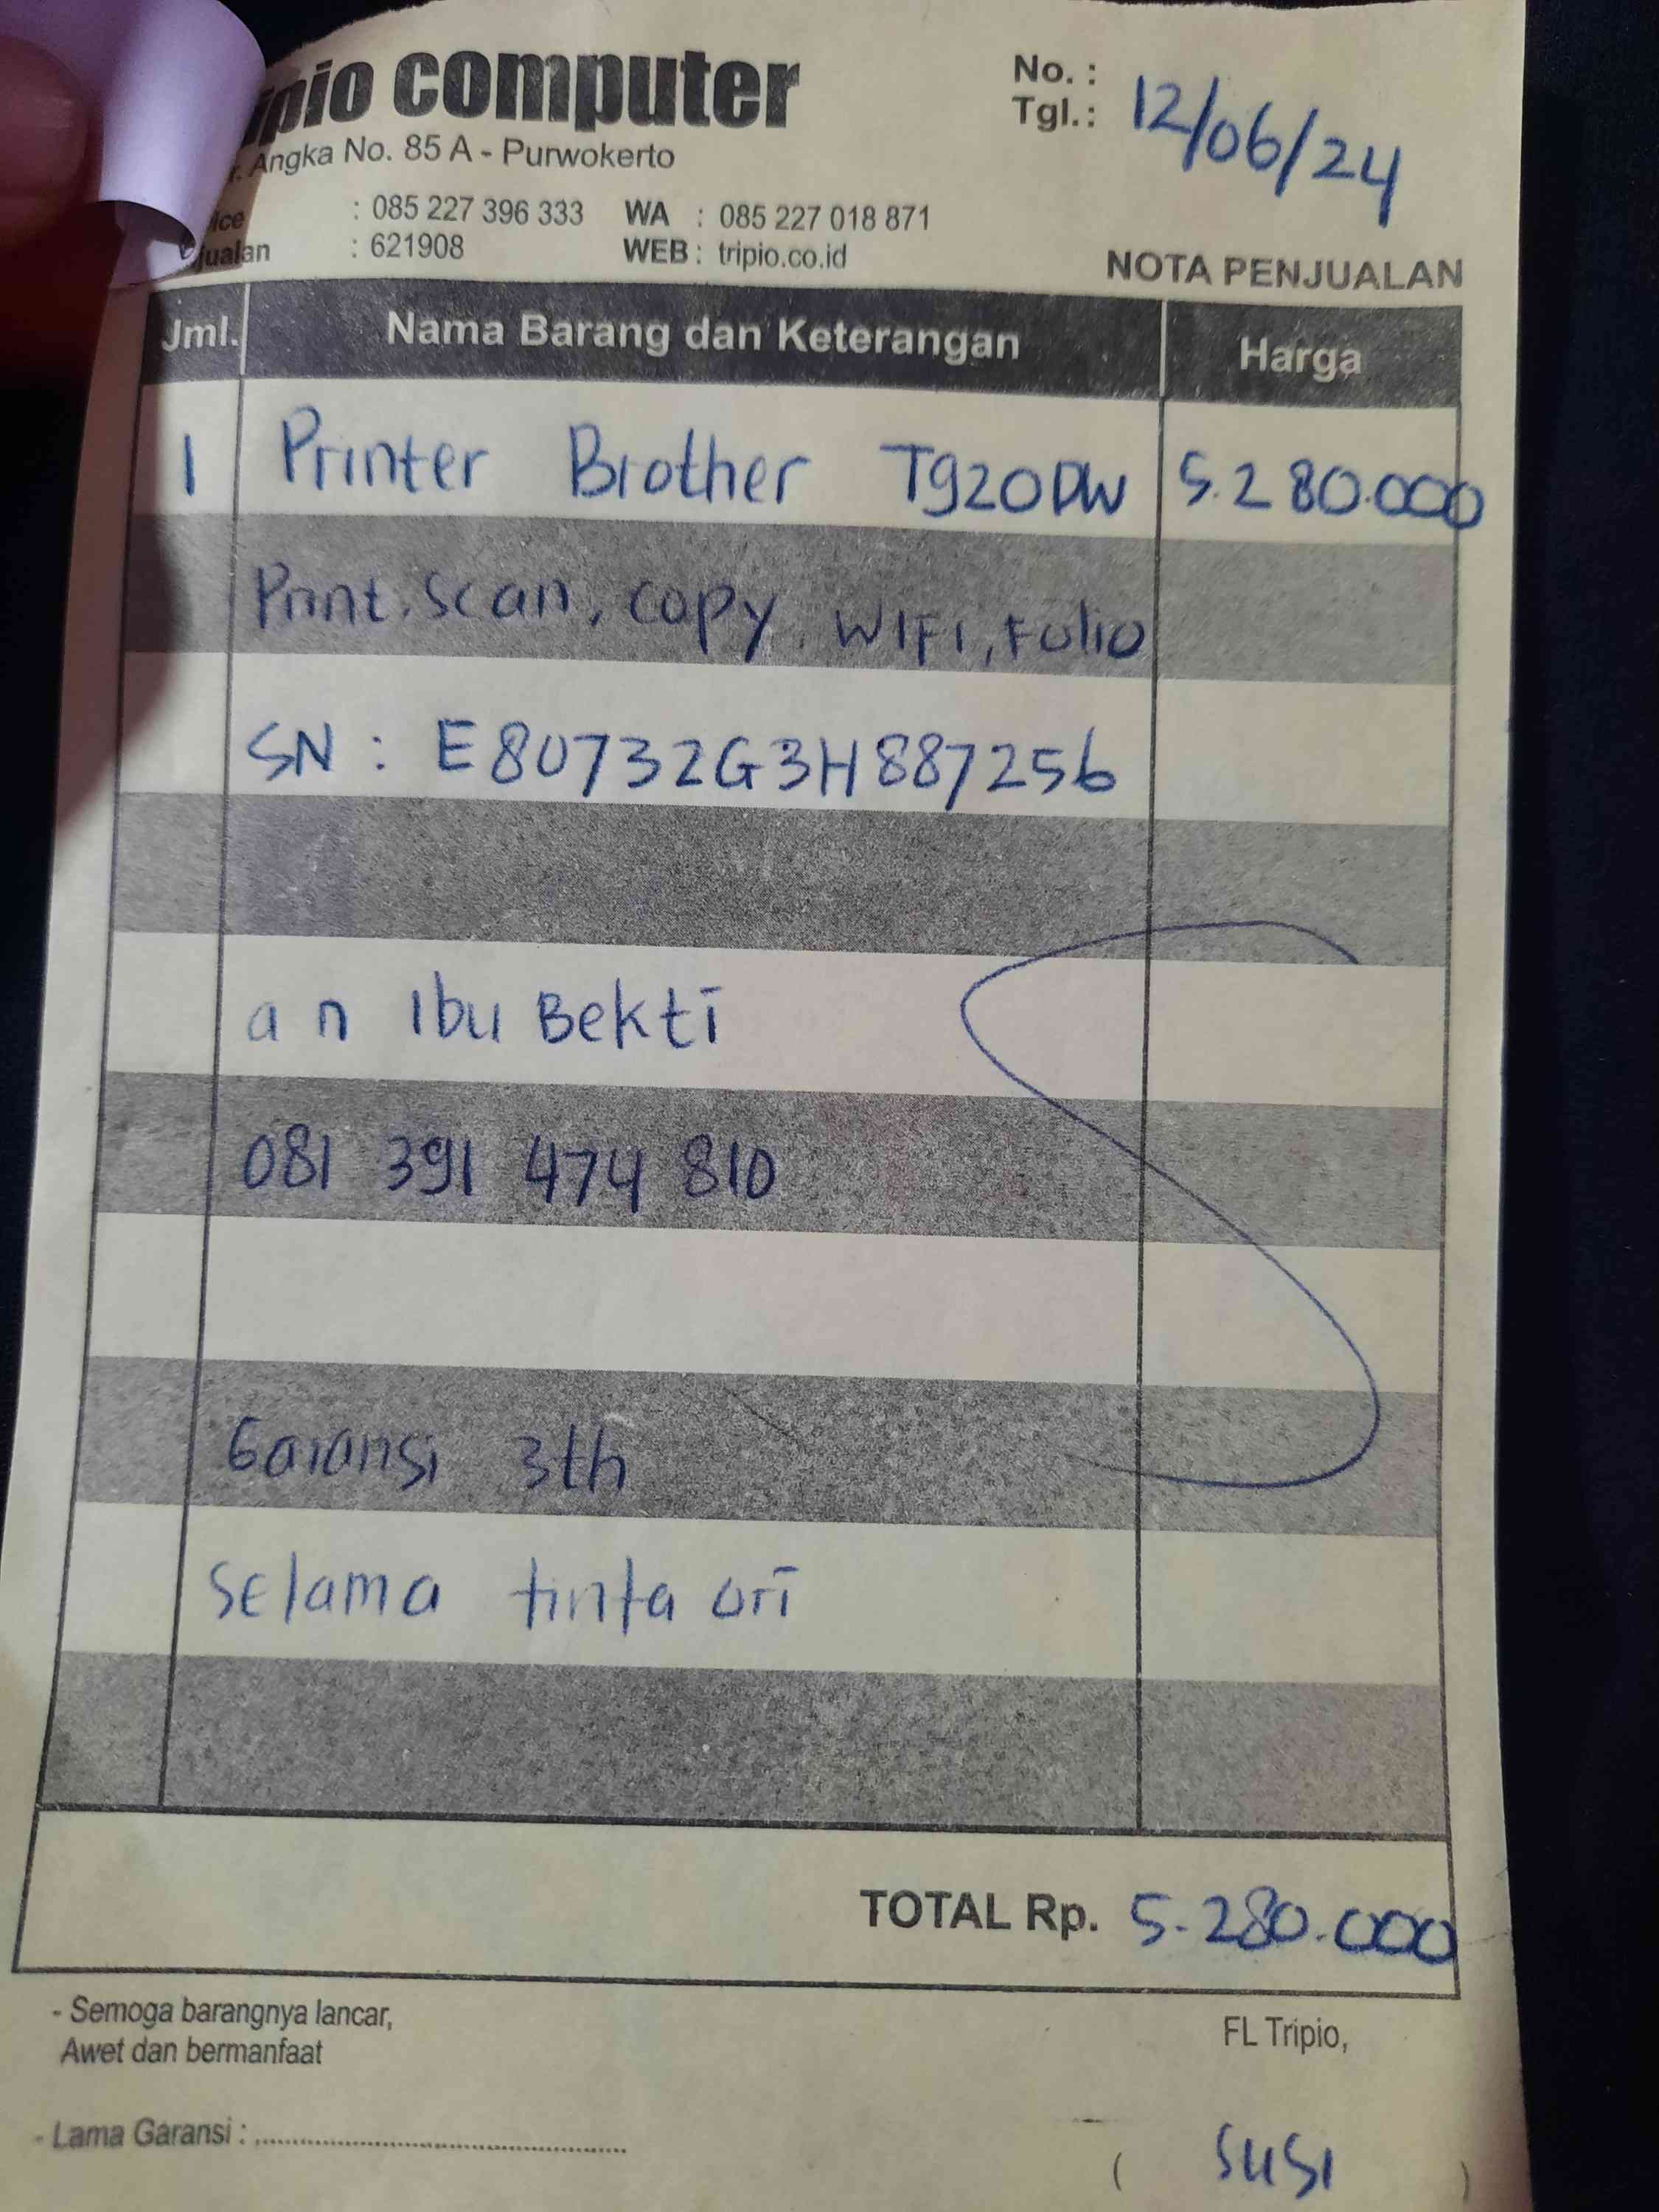 computer
No. :
Tgl. : 12/06/24
Angka No. 85 A - Purwokerto
: 085 227 396 333 WA : 085 227 018 871
: 621908 WEB : tripio.co.id
NOTA PENJUALAN
Jml. Nama Barang dan Keterangan Harga
1 Printer Brother T920DW 5.280.000
Print, Scan, copy, WIFI, Folio
SN : E80732G3H887256
an Ibu Bekti
081 391 474 810
Garansi 3th
Selama tinta ori
TOTAL Rp. 5.280.000
- Semoga barangnya lancar,
Awet dan bermanfaat
FL Tripio,
- Lama Garansi : ..........
( SUSI )